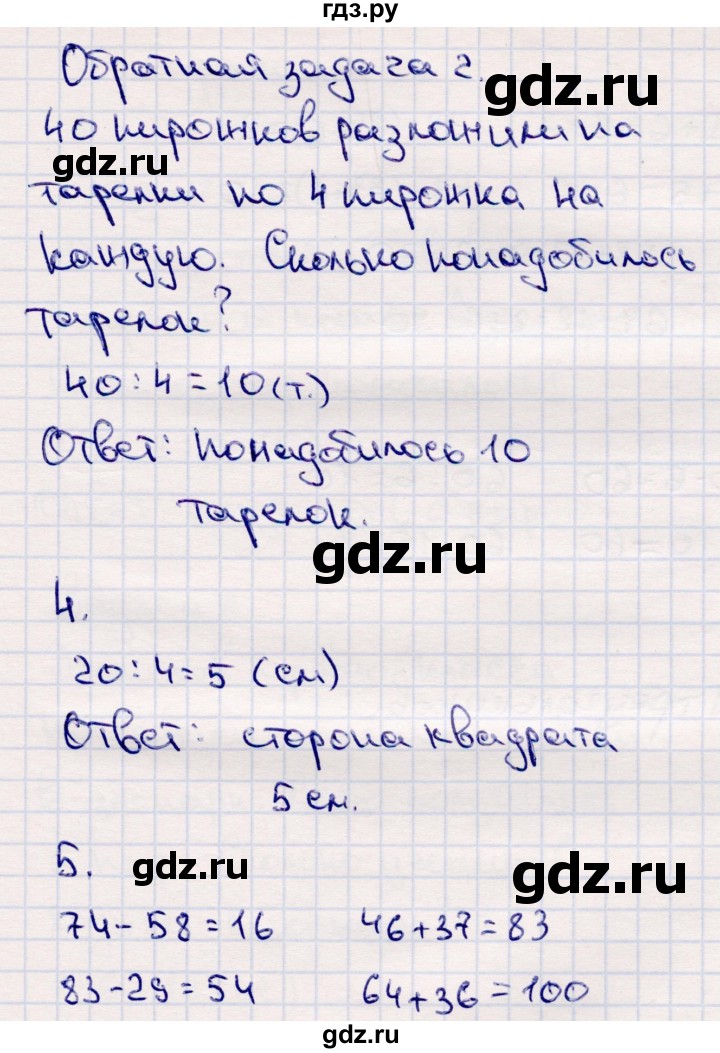 гдз.ру
Обратная задача 2.
gdz.ru
40 пирожков разложили на
gdz.ru
тарелки по 4 пирожка на
каждую. Сколько понадобилось
тарелок?
40 : 4 = 10 (т.)
Ответ: понадобилось 10
тарелок.
gdz.ru
4.
20 : 4 = 5 (см)
Ответ: сторона квадрата
5 см.
5.
gdz.ru
gdz.ru
74 - 58 = 16 46 + 37 = 83
83 - 29 = 54 64 + 36 = 100
gdz.ru